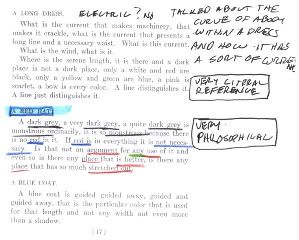 A LONG DRESS.
ELECTRIC? NO
TALKED ABOUT THE
CURVE OF A BODY
WITHIN A DRESS
AND HOW IT HAS
A SORT OF CURVE
What is the current that makes machinery, that
makes it crackle, what is the current that presents a
long line and a necessary waist. What is this current.
What is the wind, what is it.
Where is the serene length, it is there and a dark
place is not a dark place, only a white and red are
black, only a yellow and green are blue, a pink is
scarlet, a bow is every color. A line distinguishes it.
A line just distinguishes it.
VERY LITERAL
REFERENCE
A dark grey, a very dark grey, a quite dark grey is
monstrous ordinarily, it is so monstrous because there
is no red in it. If red is in everything it is not neces-
sary. Is that not an argument for any use of it and
even so is there any place that is better, is there any
place that has so much stretched out.
VERY
PHILOSOPHICAL
A BLUE COAT.
A blue coat is guided guided away, guided and
guided away, that is the particular color that is used
for that length and not any width not even more
than a shadow.
( 17 )